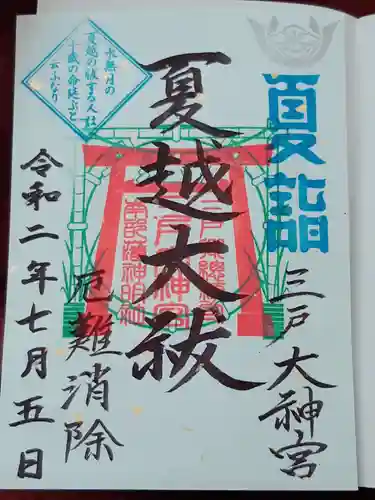 夏詣
三戸大神宮
夏越大祓
厄難消除
令和二年七月五日
水無月の
夏越の祓する人は
千歳の命延ぶと
云ふなり